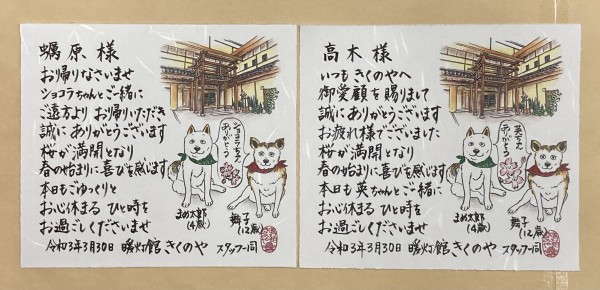 蠣原 様
お帰りなさいませ
ショコラちゃんとご一緒に
ご遠方より お帰りいただき
誠に ありがとうございます
桜が 満開となり
春の始まりに喜びを感じます
本日もごゆっくりと
お心休まる ひと時を
お過ごしくださいませ
令和3年3月30日 暖灯館 きくのや スタッフ一同
ショコラちゃん
ありがとう
まめ太郎
(4歳)
舞子
(12歳)
高木 様
いつも きくのやへ
御愛顧を賜りまして
誠に ありがとうございます
お疲れ様でございました
桜が 満開となり
春の始まりに喜びを感じます
本日も 英ちゃんとご一緒に
お心休まる ひと時を
お過ごしくださいませ
令和3年3月30日 暖灯館 きくのや スタッフ一同
英ちゃん
ありがとう
まめ太郎
(4歳)
舞子
(12歳)